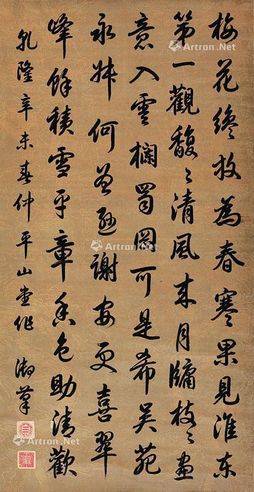 梅花纔放為春寒果見淮東
第一觀馥〻清風來月牖枝〻畫
意入雲欄蜀岡可是希吳苑
永叔何曾遜謝安更喜翠
峰餘積雪平章香色助清歡
乾隆辛未春仲平山堂作 御筆
Artron.Net
Artron.Net
Artron.Net
Artron.Net
Artron.Net